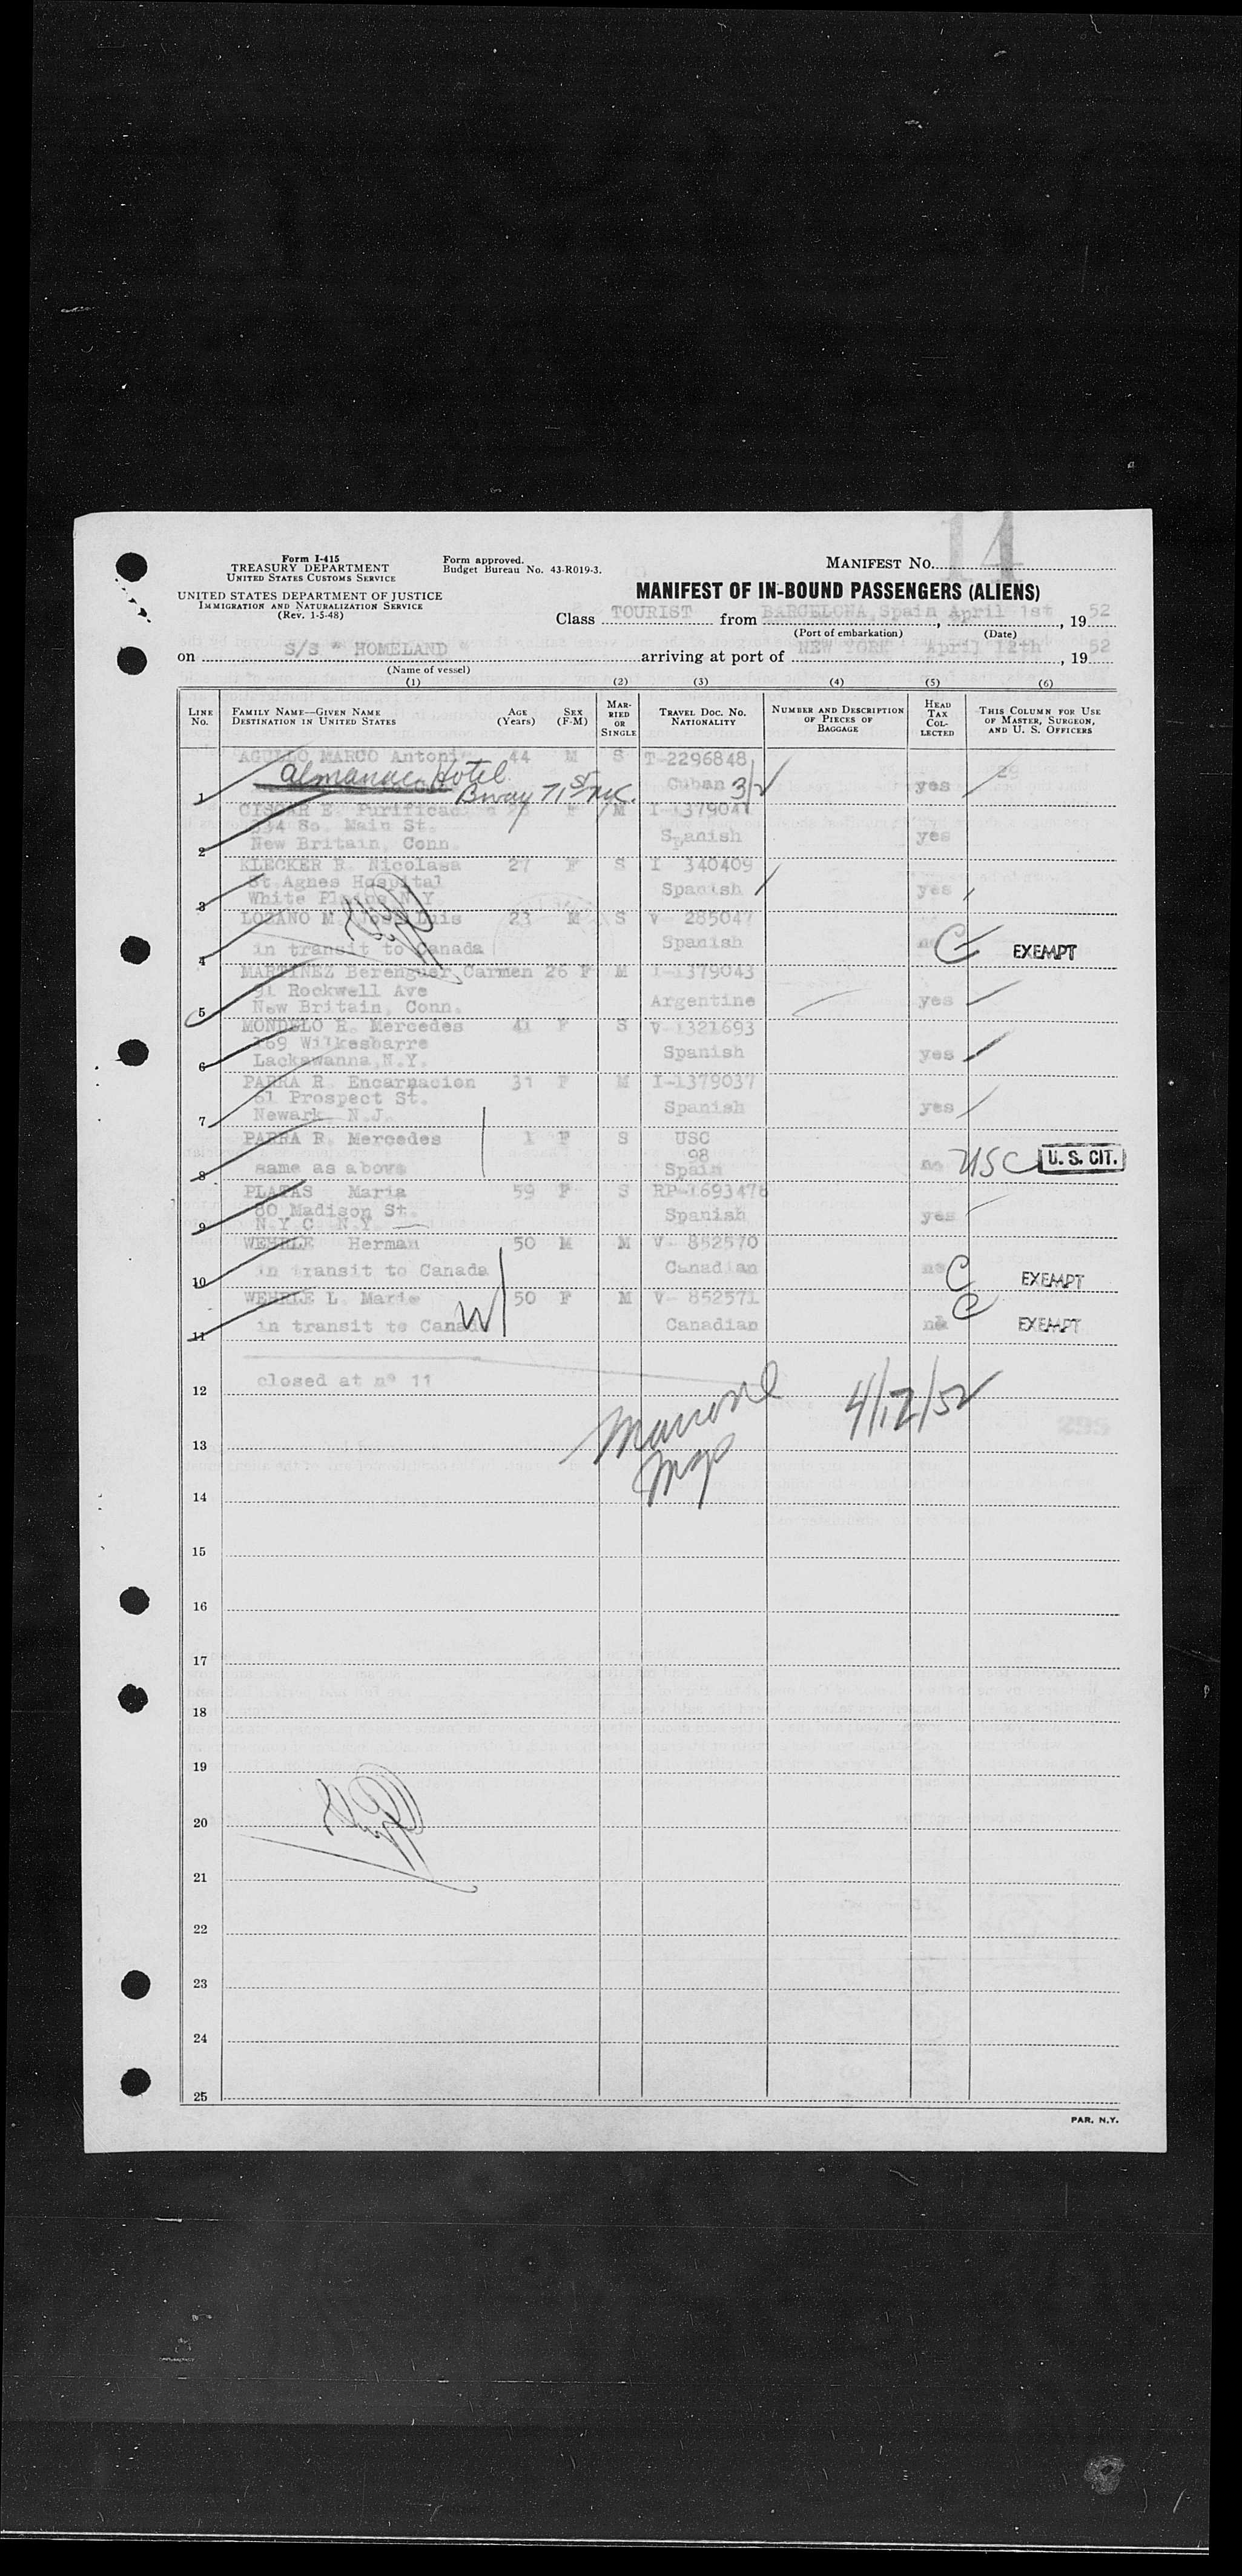 14
Form I-415
TREASURY DEPARTMENT
UNITED STATES CUSTOMS SERVICE
Form approved.
Budget Bureau No. 43-R019-3.
MANIFEST No.
UNITED STATES DEPARTMENT OF JUSTICE
IMMIGRATION AND NATURALIZATION SERVICE
(Rev. 1-5-48)
MANIFEST OF IN-BOUND PASSENGERS (ALIENS)
Class TOURIST from BARCELONA, Spain, April 1st, 1952
(Port of embarkation) (Date)
on S/S " HOMELAND " arriving at port of NEW YORK April 12th, 1952
(Name of vessel)
(1) (2) (3) (4) (5) (6)
LINE No. FAMILY NAME—GIVEN NAME DESTINATION IN UNITED STATES AGE (Years) SEX (F-M) MARRIED OR SINGLE TRAVEL DOC. NO. NATIONALITY NUMBER AND DESCRIPTION OF PIECES OF BAGGAGE HEAD TAX COLLECTED THIS COLUMN FOR USE OF MASTER, SURGEON, AND U. S. OFFICERS
AGULLO MARCO Antoni 44 M S T-2296848
Almanac Hotel 29
1 Bway 71 St NYC. Cuban yes
CISCAR E. Purificacion F M I-1379041
534 So. Main St.
2 New Britain, Conn. Spanish yes
KLECKER R. Nicolasa 27 F S I 340409
St Agnes Hospital
3 White Plains N.Y. Spanish yes
LOZANO M. Jose Luis 23 M S V- 285047
4 in transit to Canada Spanish no C EXEMPT
MARTINEZ Berenguer Carmen 26 F M I-1379043
91 Rockwell Ave
5 New Britain, Conn. Argentine yes
MONDELO R. Mercedes 41 F S V-1321693
169 Wilkesbarre
6 Lackawanna, N.Y. Spanish yes
PARRA R. Encarnacion 31 F M I-1379037
61 Prospect St.
7 Newark N.J. Spanish yes
PARRA R. Mercedes 1 F S USC
98
8 same as above Spain no USC U. S. CIT.
PLATAS Maria 59 F S RP-1693476
80 Madison St.
9 N.Y.C N.Y. Spanish yes
WEHRLE Herman 50 M M V- 852570
10 in transit to Canada Canadian no C EXEMPT
WEHRLE L. Marie 50 F M V- 852571
11 in transit to Canada Canadian no C EXEMPT
12 closed at nº 11
4/12/52
13
14
15
16
17
18
19
20
21
22
23
24
25
PAR. N.Y.